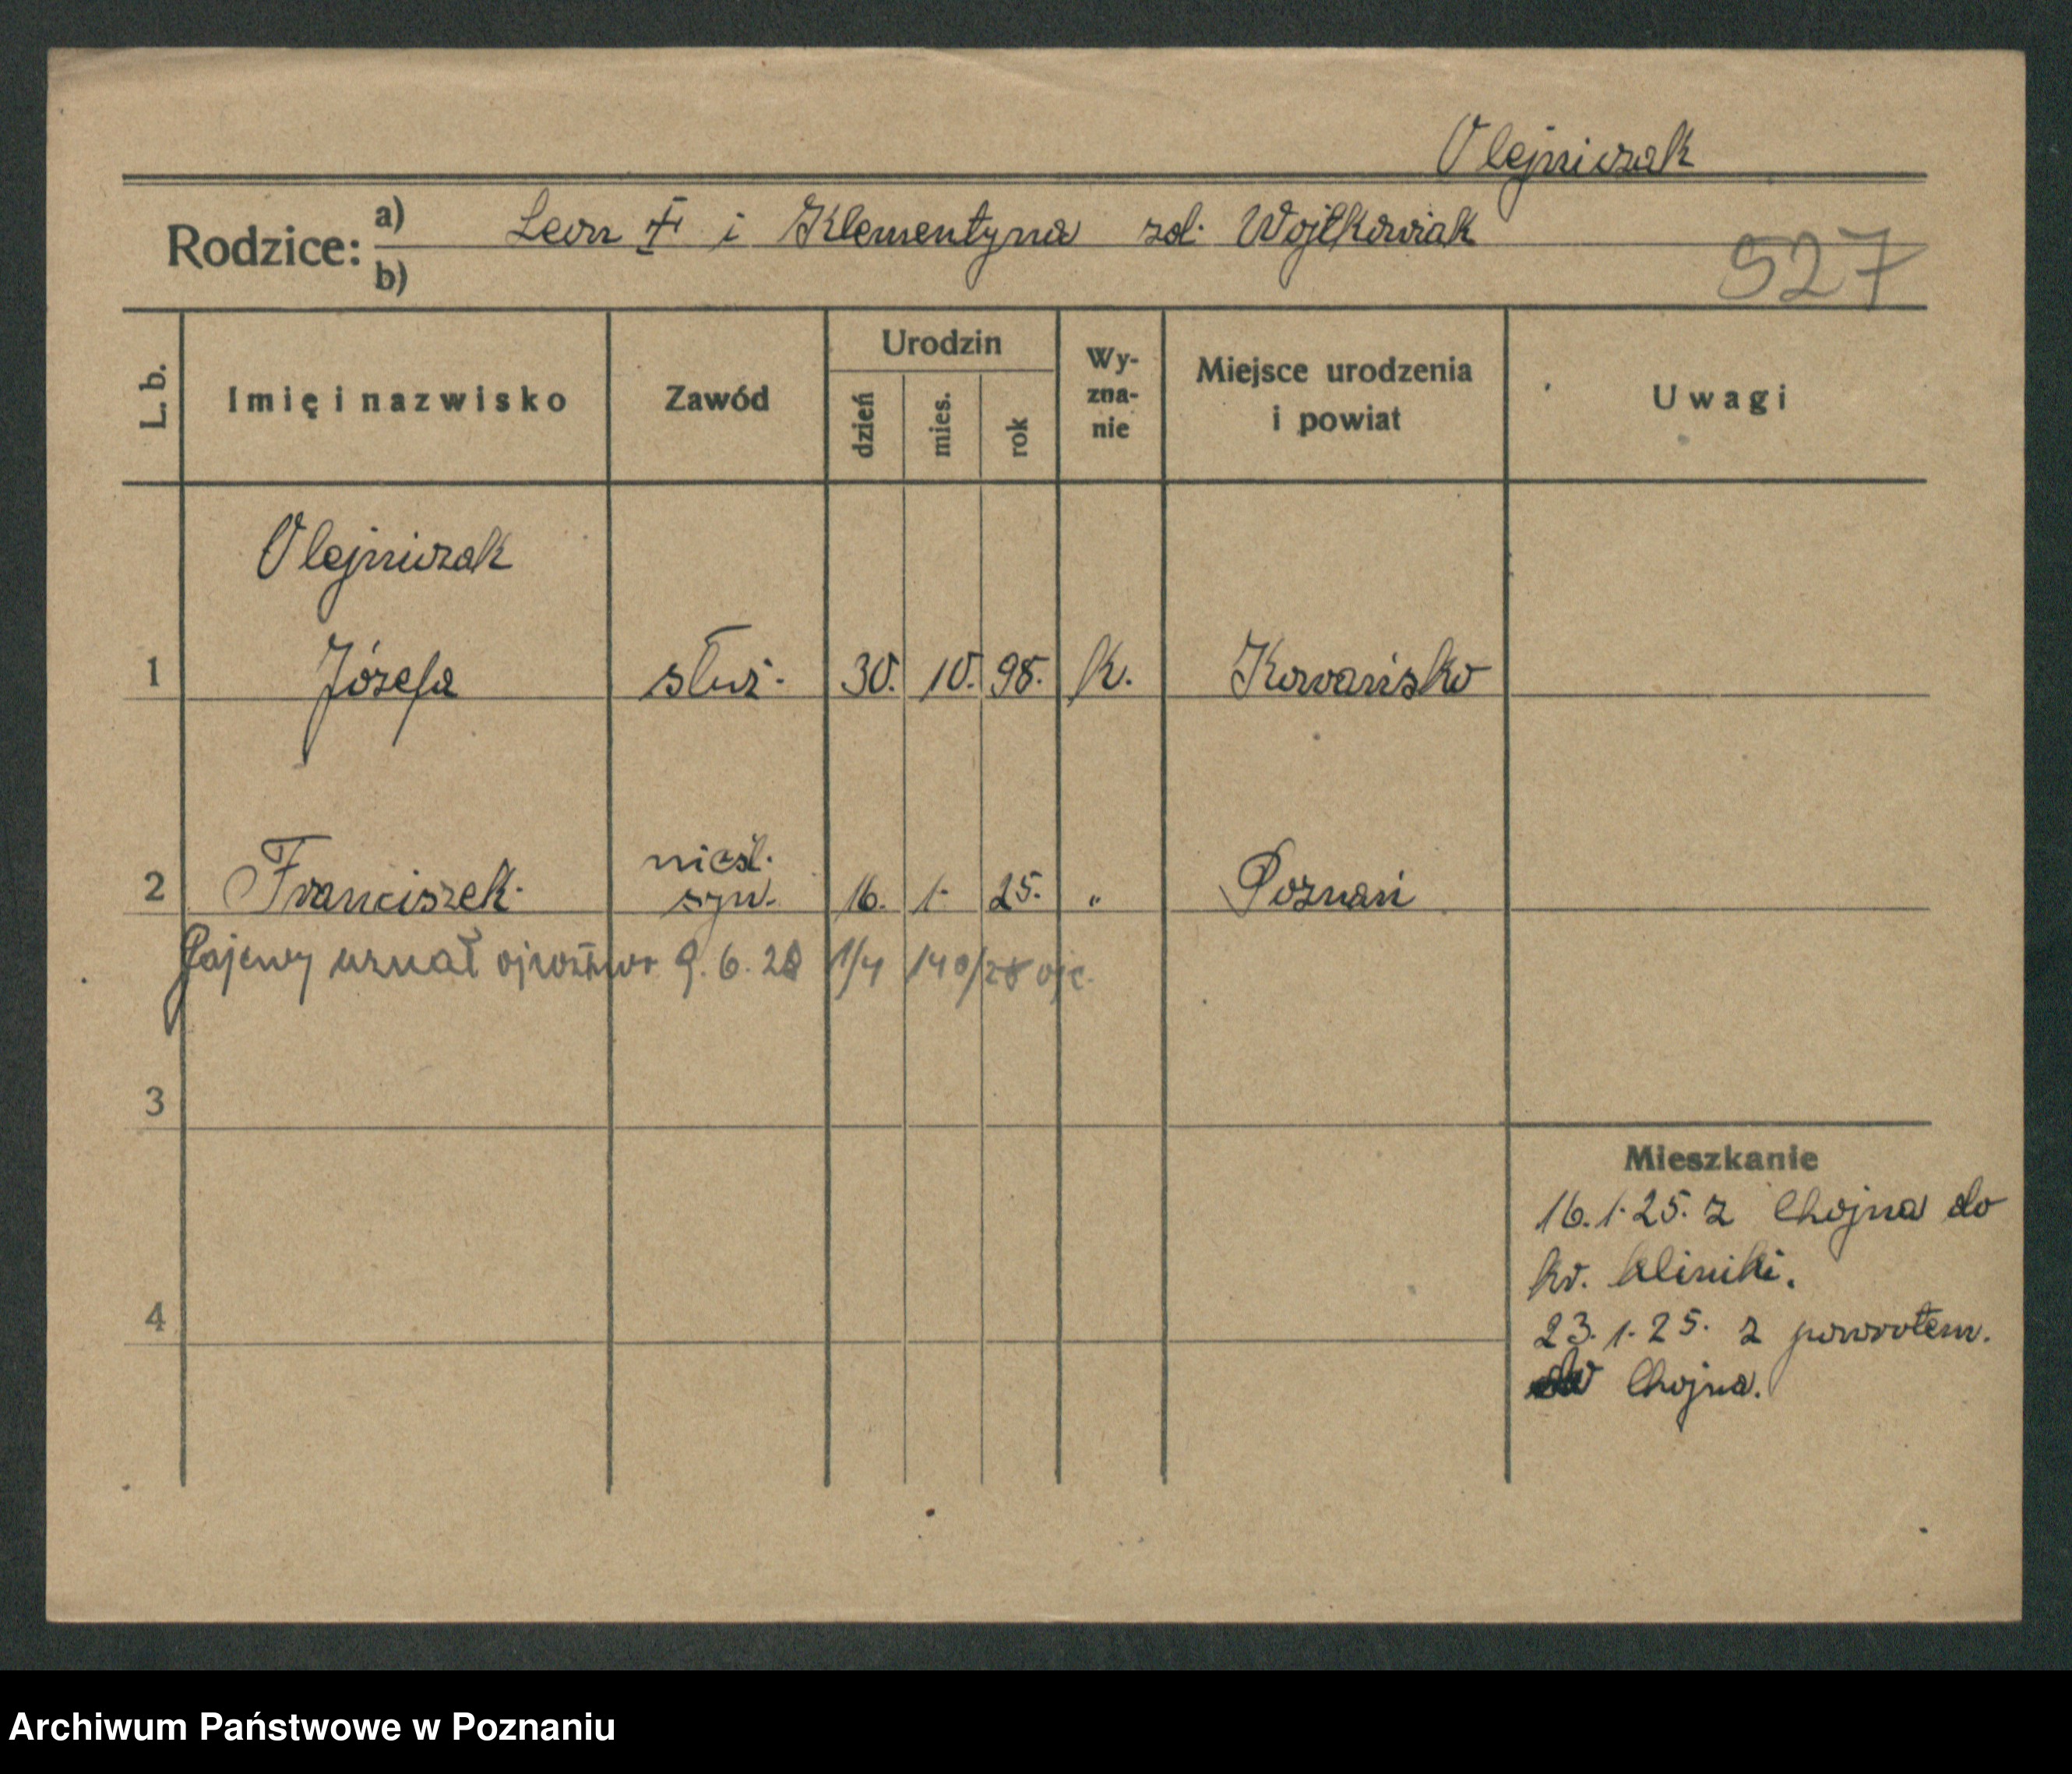 Olejniczak
Rodzice: a) Leon † i Klementyna zd. Wojtkowiak
b)
527
L. b.
Imię i nazwisko
Zawód
Urodzin
dzień
mies.
rok
Wy-
zna-
nie
Miejsce urodzenia
i powiat
Uwagi
Olejniczak
1 Józefa służ. 30. 10. 98. k. Kowańsko
nieśl.
2 Franciszek. syn. 16. 1. 25. " Poznań
uznał ojcostwo 9. 6. 28 1/4 140/28 ojc.
3
Mieszkanie
16.1.25. z Chojna do
kr. kliniki.
4
23.1.25. z powrotem.
do Chojna.
Archiwum Państwowe w Poznaniu